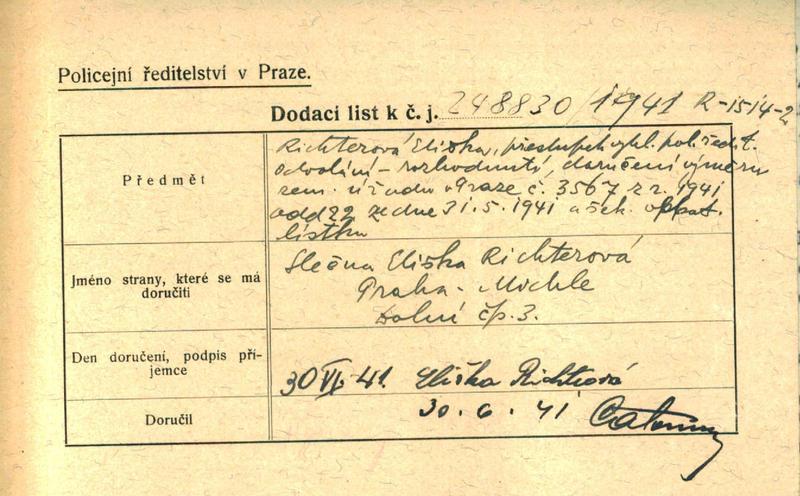 Policejní ředitelství v Praze.
Dodací list k č. j. 248830/1941 R-1514-2
Předmět
Richterová Eliška, přestupek vyhl. pol. ředit.
odvolání - rozhodnutí, doručení výměru
zem. úřadu v Praze č. 3567 z r. 1941
odd 22 ze dne 31.5.1941 a šek.
lístku
Jméno strany, které se má
doručiti
Slečna Eliška Richterová
Praha - Michle
Dolní čp. 3.
Den doručení, podpis pří-
jemce
30 VI. 41. Eliška Richtrová
Doručil
30. 6. 41